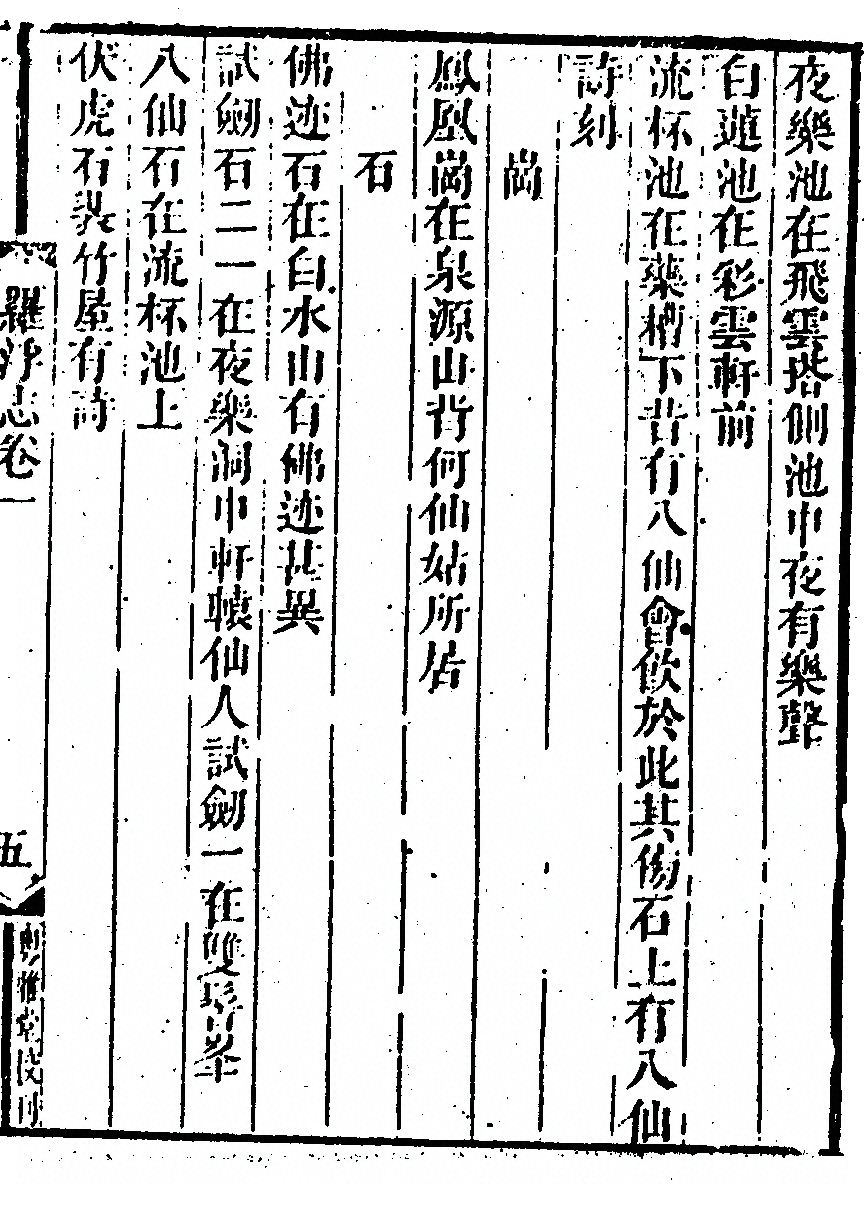 夜樂池在飛雲塔側池中夜有樂聲
白蓮池在彩雲軒前
流杯池在藥槽下昔有八仙會飲於此其傍石上有八仙
詩刻
崗
鳳凰崗在泉源山背何仙姑所居
石
佛迹石在白水山有佛迹甚異
試劒石二一在夜樂洞中軒轅仙人試劒一在雙髻峯
八仙石在流杯池上
伏虎石製竹屋有詩
羅浮志卷一
五
粵雅堂校刊